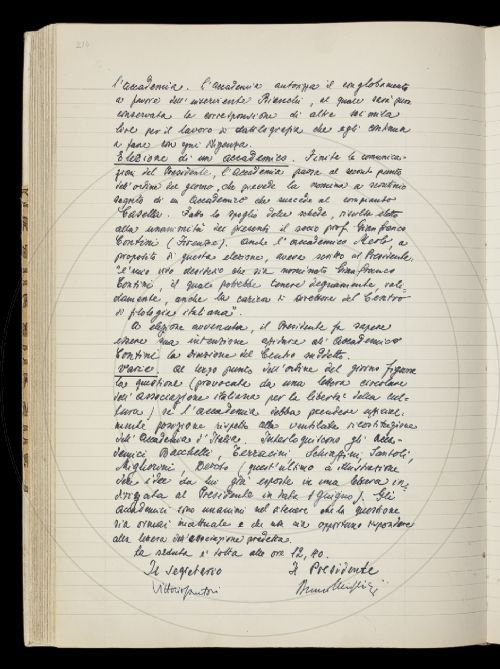 214
l'Accademia. L'Accademia autorizza il conglobamento
a favore dell'inserviente Bianchi, al quale sarà pure
conservata la corresponsione di altre seimila
lire per il lavoro di dattilografia che egli continua
a fare con ogni diligenza.
Elezione di un accademico. Finite le comunica-
zioni del Presidente, l'Accademia passa al secondo punto
dell'ordine del giorno, che prevede la nomina a scrutinio
segreto di un Accademico che succeda al compianto
Casella. Fatto lo spoglio delle schede, risulta eletto
alla unanimità dei presenti il socio prof. Gianfranco
Contini (Firenze). Anche l'accademico Merlo, a
proposito di questa elezione, aveva scritto al Presidente:
"È mio vivo desiderio che sia nominato Gianfranco
Contini, il quale potrebbe tenere degnamente, vali-
damente, anche la carica di direttore del Centro
di filologia italiana".
A elezione avvenuta, il Presidente fa sapere
essere sua intenzione affidare all'Accademico
Contini la direzione del Centro suddetto.
Varie. Al terzo punto dell'ordine del giorno figura
la questione (provocata da una lettera circolare
dell'Associazione italiana per la libertà della cul-
tura) se l'Accademia debba prendere ufficial-
mente posizione rispetto alla ventilata ricostituzione
dell'Accademia d'Italia. Interloquiscono gli Acca-
demici Bacchelli, Terracini, Schiaffini, Santoli,
Migliorini, Devoto (quest'ultimo a illustrazione
delle idee da lui già esposte in una lettera in-
dirizzata al Presidente in data 1 Giugno). Gli
Accademici sono unanimi nel ritenere che la questione
sia ormai inattuale e che non sia opportuno rispondere
alla lettera dell'associazione predetta.
La seduta è tolta alle ore 12,40.
Il Segretario Il Presidente
Vittorio Santoli Bruno Migliorini